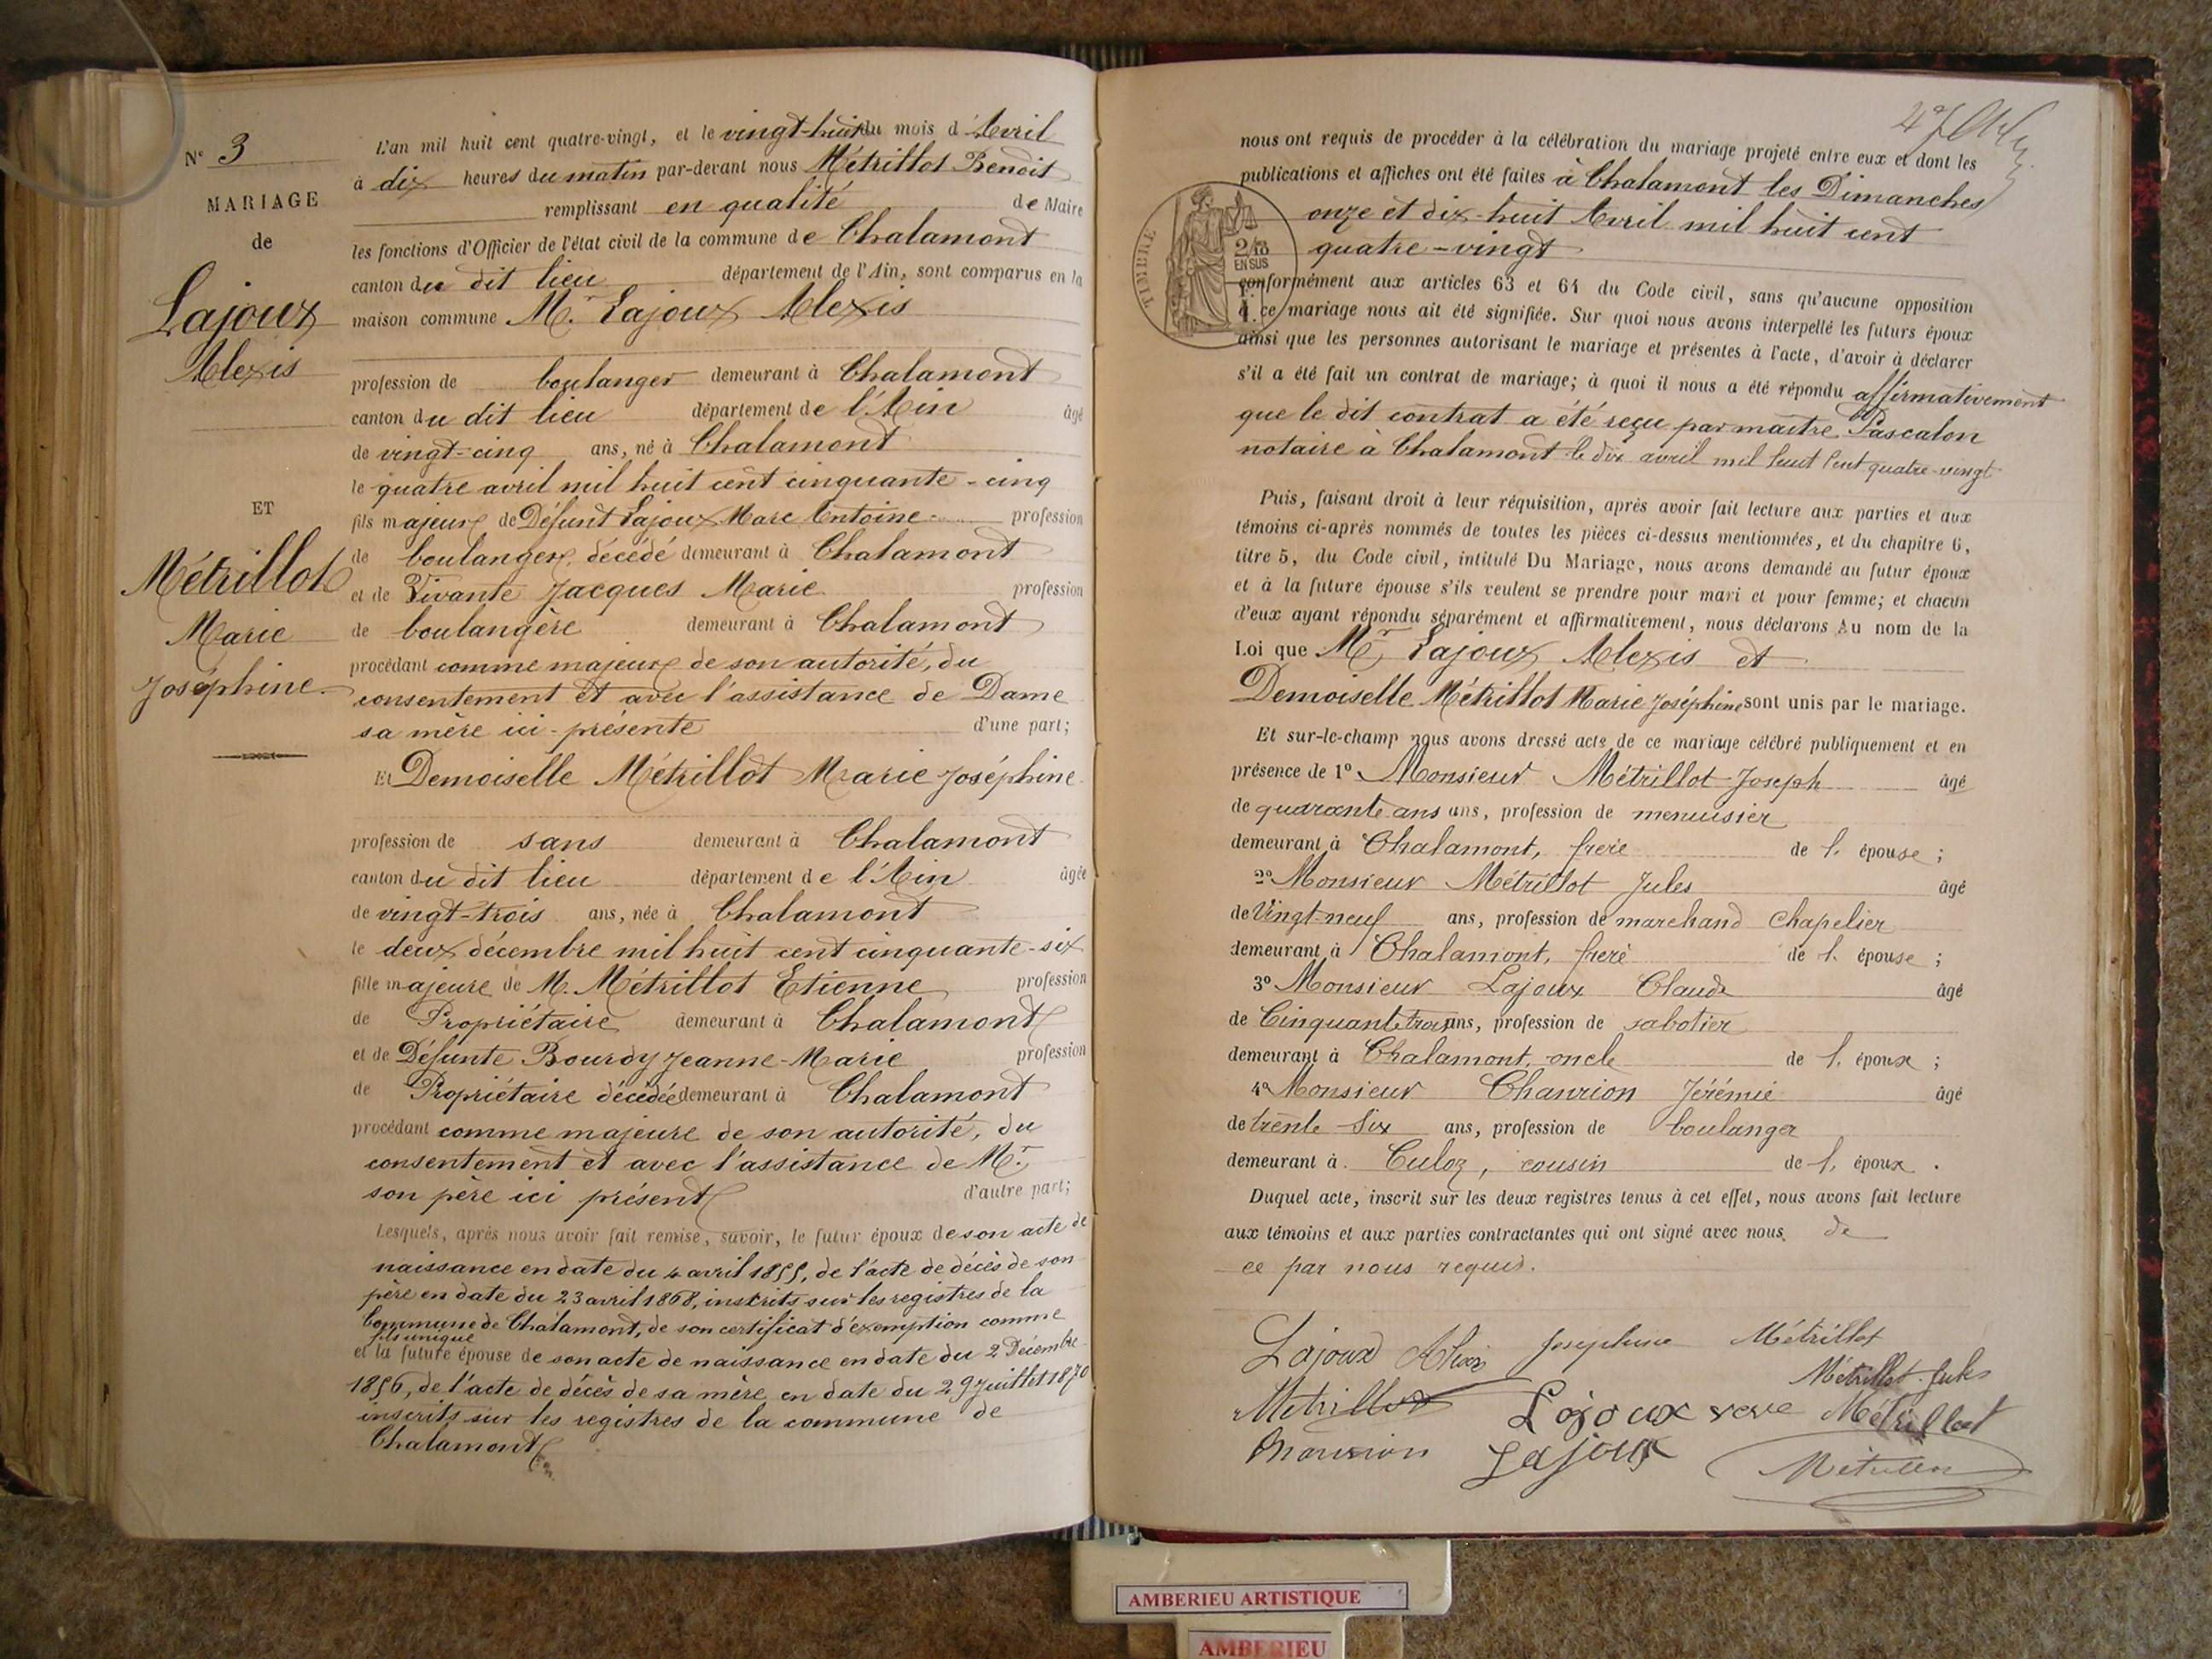 N° 3
MARIAGE
de
Lajoux
Alexis
ET
Métrillot
Marie
Joséphine.
L'an mil huit cent quatre-vingt, et le vingt-huit du mois d'Avril
à dix heures du matin par-devant nous Métrillot Benoit
remplissant en qualité de Maire
les fonctions d'Officier de l'état civil de la commune de Chalamont
canton du dit lieu département de l'Ain, sont comparus en la
maison commune Mr. Lajoux Alexis
profession de boulanger demeurant à Chalamont
canton du dit lieu département de l'Ain âgé
de vingt-cinq ans, né à Chalamont
le quatre avril mil huit cent cinquante-cinq
fils majeur de Défunt Lajoux Marc Antoine profession
de boulanger, décédé demeurant à Chalamont
et de Vivante Jacques Marie profession
de boulangère demeurant à Chalamont
procédant comme majeur de son autorité, du
consentement et avec l'assistance de Dame
sa mère ici-présente d'une part;
Et Demoiselle Métrillot Marie Joséphine
profession de sans demeurant à Chalamont
canton du dit lieu département de l'Ain âgée
de vingt-trois ans, née à Chalamont
le deux décembre mil huit cent cinquante-six
fille majeure de M. Métrillot Etienne profession
de Propriétaire demeurant à Chalamont
et de Défunte Bourdy Jeanne-Marie profession
de Propriétaire décédée demeurant à Chalamont
procédant comme majeure de son autorité, du
consentement et avec l'assistance de Mr.
son père ici présent d'autre part;
Lesquels, après nous avoir fait remise, savoir, le futur époux de son acte de
naissance en date du 4 avril 1855, de l'acte de décès de son
père en date du 23 avril 1868, inscrits sur les registres de la
Commune de Chalamont, de son certificat d'exemption comme
fils unique
et la future épouse de son acte de naissance en date du 2 Décembre
1856, de l'acte de décès de sa mère en date du 29 Juillet 1870
inscrits sur les registres de la commune de
Chalamont
nous ont requis de procéder à la célébration du mariage projeté entre eux et dont les
publications et affiches ont été faites à Chalamont les Dimanches
onze et dix-huit Avril mil huit cent
quatre-vingt
TIMBRE
2/10
EN SUS
conformément aux articles 63 et 64 du Code civil, sans qu'aucune opposition
à ce mariage nous ait été signifiée. Sur quoi nous avons interpellé les futurs époux
ainsi que les personnes autorisant le mariage et présentes à l'acte, d'avoir à déclarer
s'il a été fait un contrat de mariage; à quoi il nous a été répondu affirmativement
que le dit contrat a été reçu par maître Pascalon
notaire à Chalamont le dix avril mil huit cent quatre-vingt
Puis, faisant droit à leur réquisition, après avoir fait lecture aux parties et aux
témoins ci-après nommés de toutes les pièces ci-dessus mentionnées, et du chapitre 6,
titre 5, du Code civil, intitulé Du Mariage, nous avons demandé au futur époux
et à la future épouse s'ils veulent se prendre pour mari et pour femme; et chacun
d'eux ayant répondu séparément et affirmativement, nous déclarons Au nom de la
Loi que Mr Lajoux Alexis et
Demoiselle Métrillot Marie Joséphine sont unis par le mariage.
Et sur-le-champ nous avons dressé acte de ce mariage célébré publiquement et en
présence de 1° Monsieur Métrillot Joseph âgé
de quarante ans ans, profession de menuisier
demeurant à Chalamont, frère de l. épouse;
2° Monsieur Métrillot Jules âgé
de Vingt-neuf ans, profession de marchand Chapelier
demeurant à Chalamont, frère de l. épouse;
3° Monsieur Lajoux Claude âgé
de Cinquante trois ans, profession de sabotier
demeurant à Chalamont, oncle de l. époux;
4° Monsieur Chanrion Jérémie âgé
de trente-six ans, profession de boulanger
demeurant à Culoz, cousin de l. époux.
Duquel acte, inscrit sur les deux registres tenus à cet effet, nous avons fait lecture
aux témoins et aux parties contractantes qui ont signé avec nous, de
ce par nous requis.
Lajoux Alexis Josephine Métrillot
Métrillot Jules
Metrillot Lajoux veve Métrillot
Chanrion Lajoux
AMBERIEU ARTISTIQUE
AMBERIEU